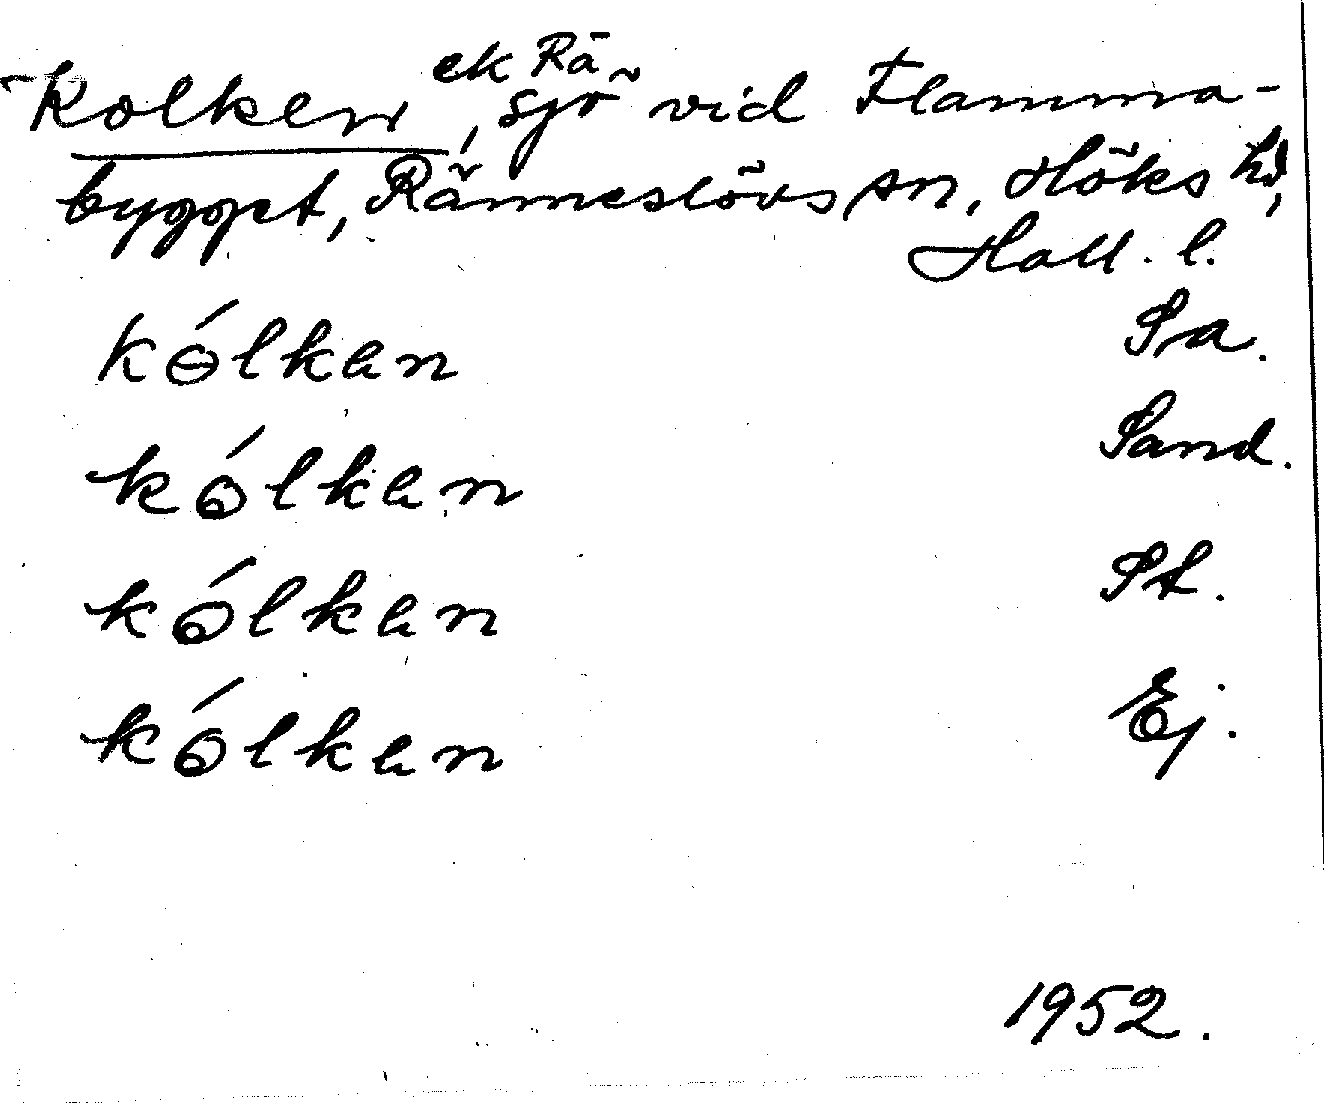 Kolken, ek Rä sjö vid Flamma-
bygget, Ränneslövs sn, Höks hd,
Hall. l.
kɵ́lkan Sa.
kólkan Sand.
kólkan St.
kólkan Ej.
1952.